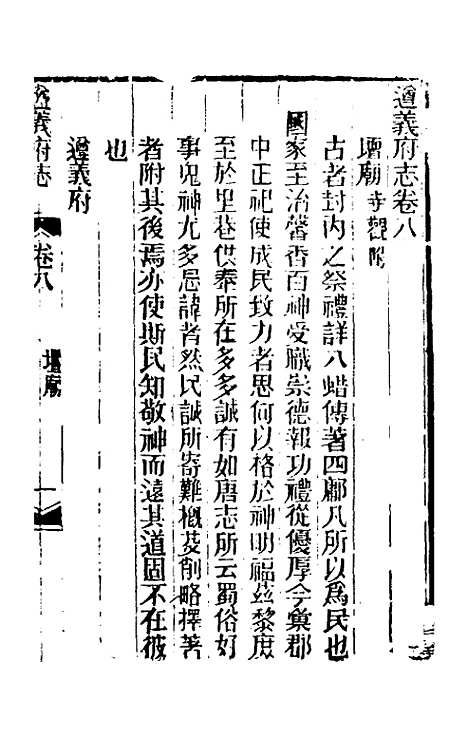 遵義府志卷八
壇廟寺觀附
古者封內之祭禮詳八蜡傳著四鄘凡所以為民也
國家至治馨香百神受職崇德報功禮從優厚今彙郡
中正祀使成民致力者思何以格於神明福茲黎庶
至於里巷供奉所在多多誠有如唐志所云蜀俗好
事鬼神尤多忌諱者然民誠所寄難概芟削略擇著
者附其後焉亦使斯民知敬神而遠其道固不在彼
也
遵義府
遵義府志
卷八
壇廟
一